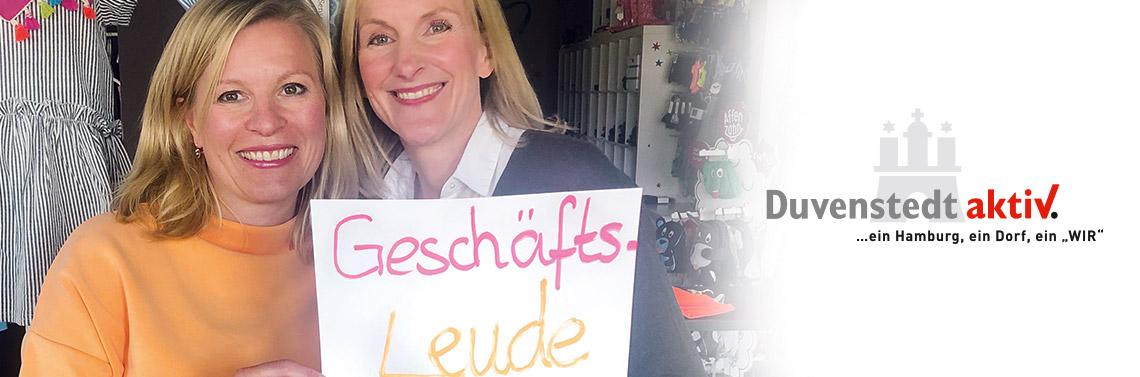 Geschäfts-
Leude
Affen
zahn
Duvenstedt aktiv.
...ein Hamburg, ein Dorf, ein „WIR“